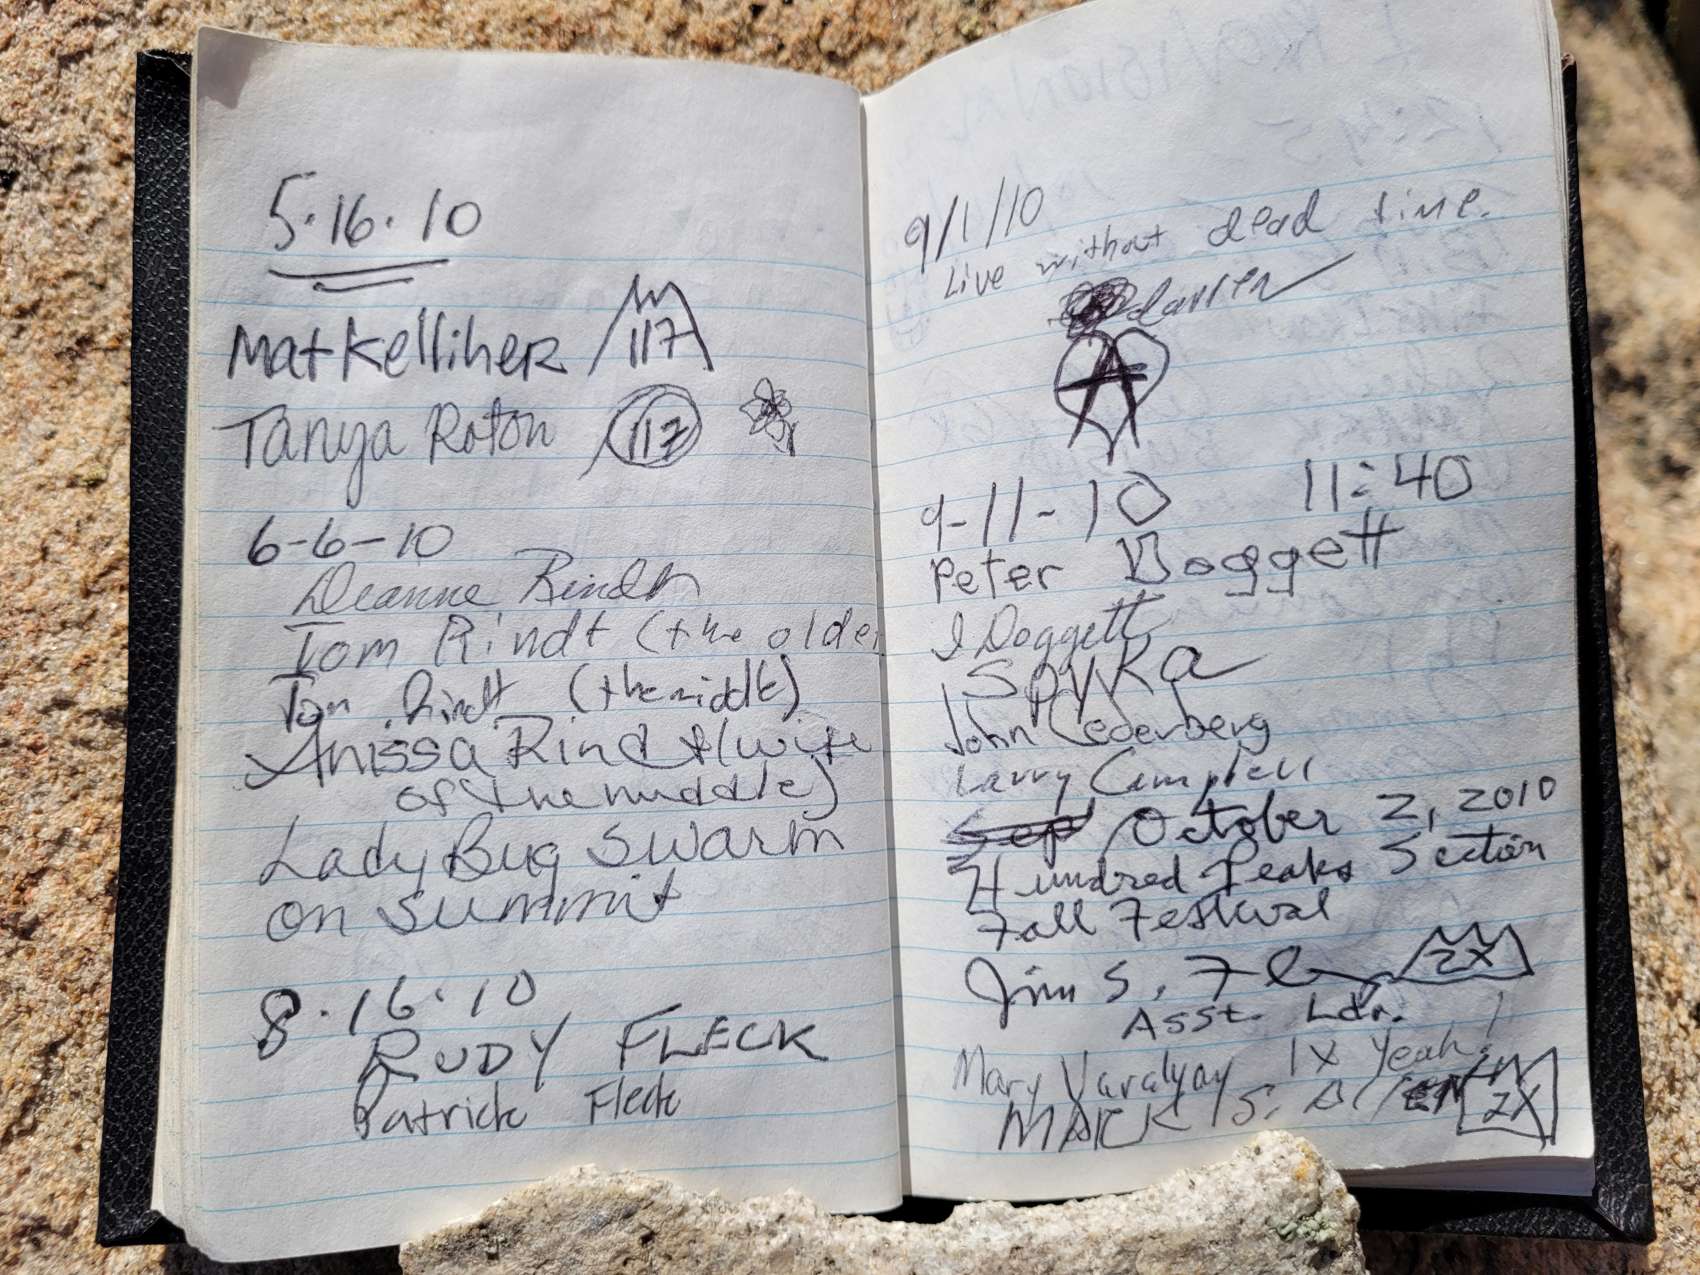 5.16.10
Mat Kelliher 117
Tanya Roton 117
6-6-10
Deanne Rindt
Tom Rindt (the older
Tom Rindt (the middle)
Anissa Rindt (wife
of the middle)
Lady Bug Swarm
on summit
8.16.10
RUDY FLECK
Patrick Fleck
9/1/10
Live without dead time.
A
9-11-10 11:40
Peter Doggett
J Doggett
John Cederberg
Larry Campbell
Sep October 2, 2010
Hundred Peaks Section
Fall Festival
Jim S. 2X
Asst. Ldr.
Mary 1X Yeah!
MARK S. 2X